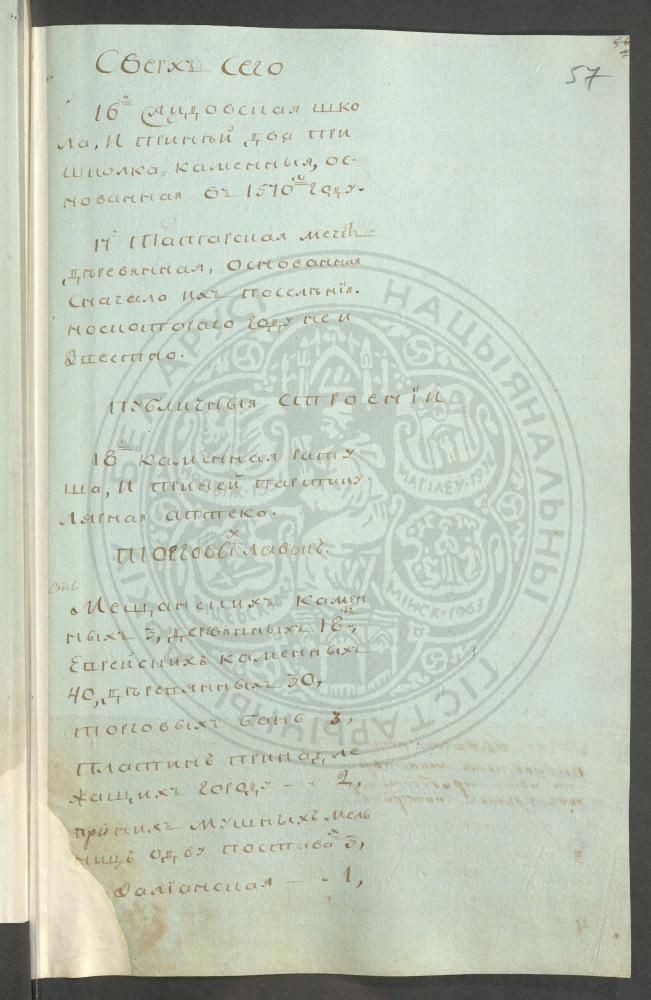 57
Сверхъ Сего
16й Жидовская шко
ла, И принѣй двѣ при
школка, каменныя, ос-
нованная въ 1570мъ году.
17 Татарская мечеть
Дѣревянная, основанная
сначала ихъ поселѣнїя.
Но скотораго году не и
звестно.
Публичныя Строенїи
18я каменная рату
ша, И приней партику
лярная аптека.
Торговыхъ лавокъ.
Мещанскихъ камен
ныхъ 3, деревянныхъ 18,
Еврейскихъ каменныхъ
40, дѣревянныхъ 30,
торговыхъ банъ 3,
Платинъ принадле
жащихъ городу - - 2,
принихъ мушныхъ мель
ницъ одву постава 3,
валїанская - - 1,
НАЦЫЯНАЛЬНЫ
ГІСТАРЫЧНЫ
МАГІЛЕЎ·
МІНСК·